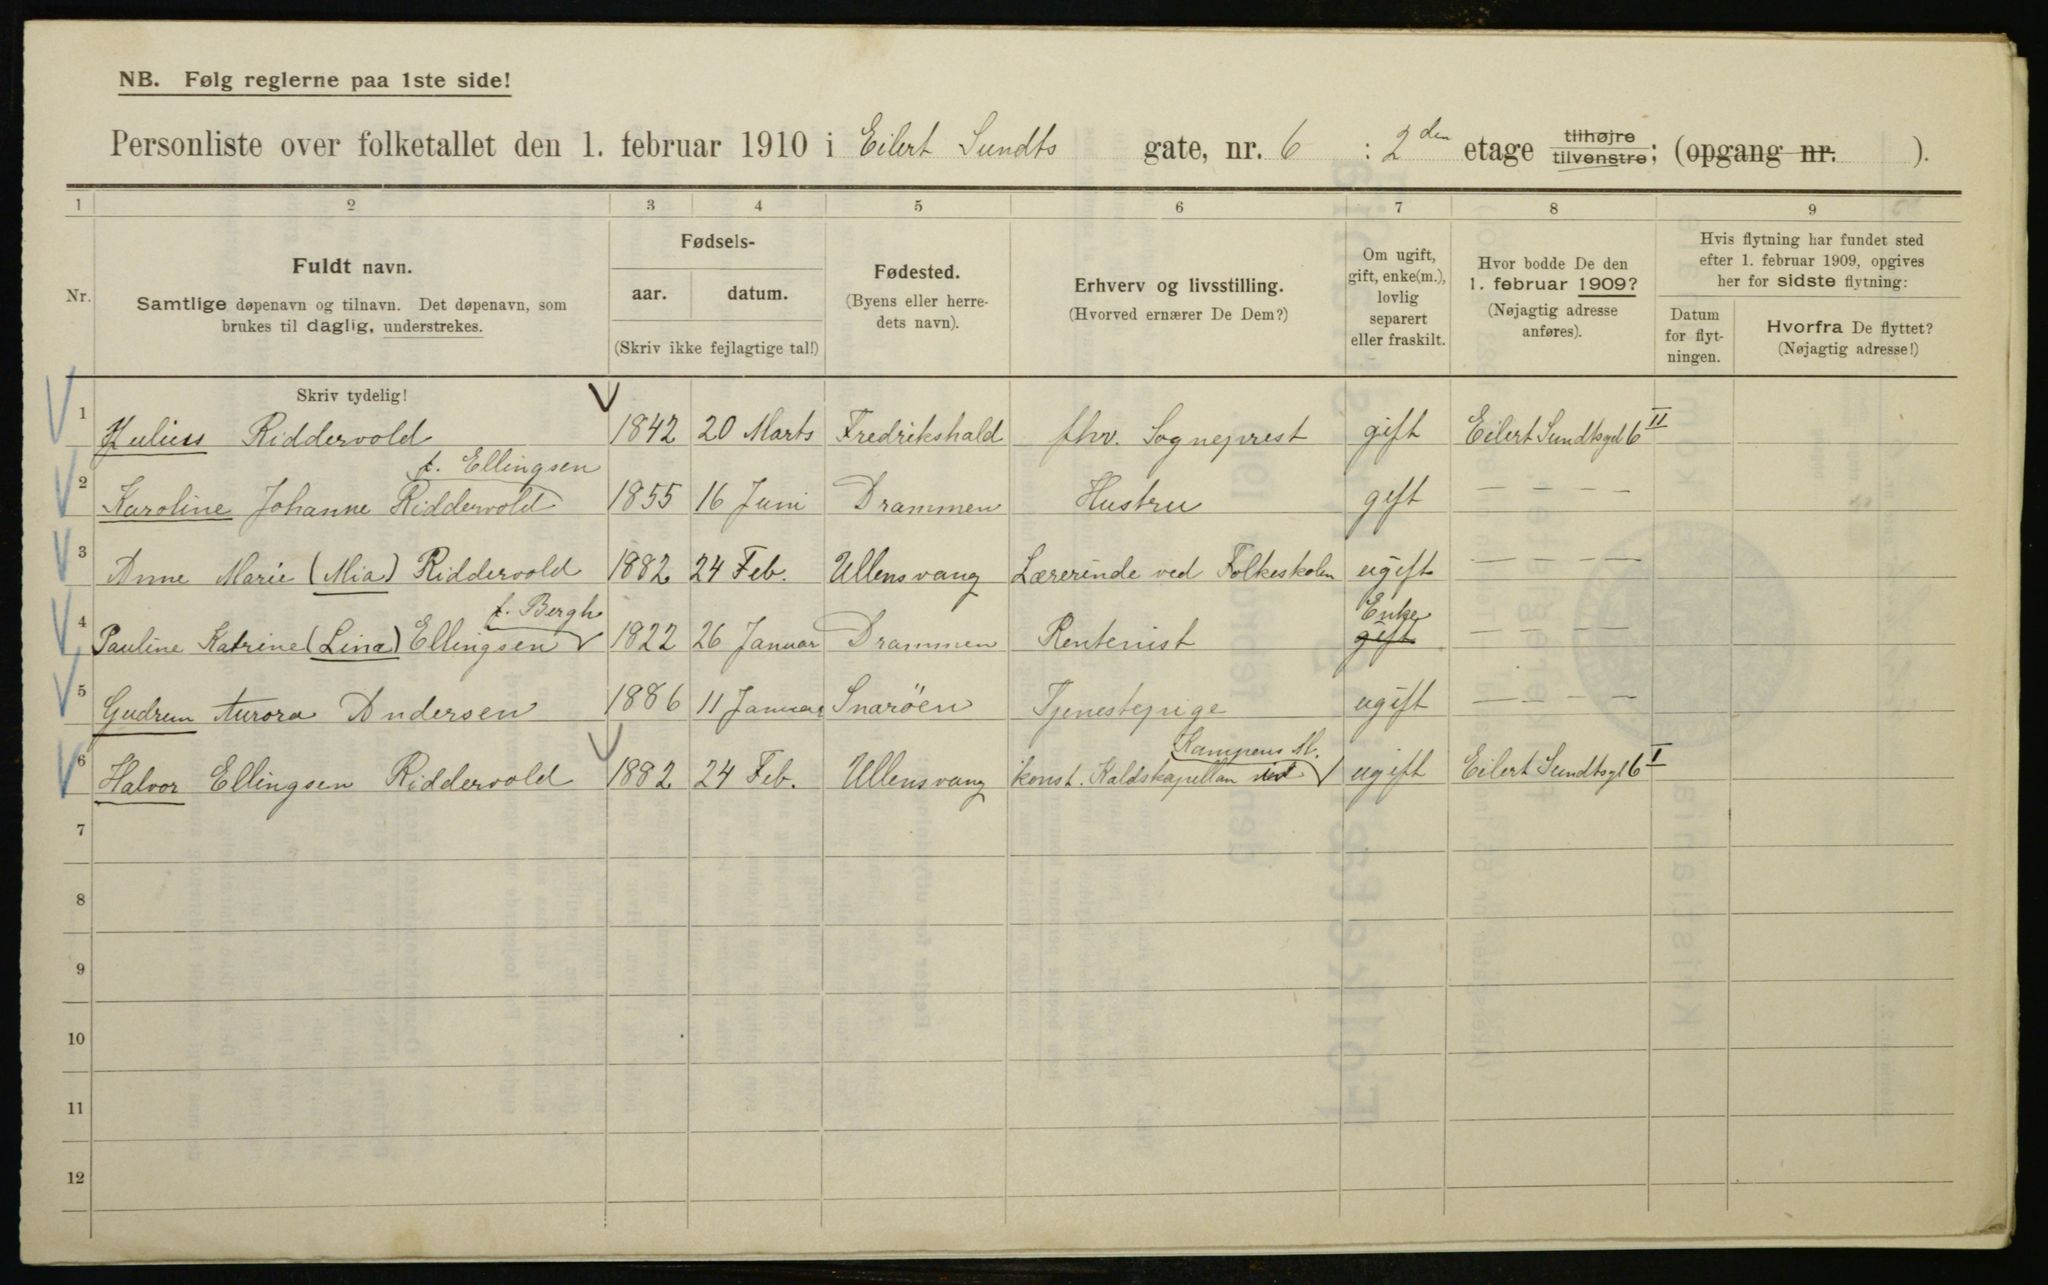 NB. Følg reglerne paa 1ste side!
Personliste over folketallet den 1. februar 1910 i Eilert Sundts gate, nr. 6 : 2den etage tilhøjre tilvenstre; (opgang nr. ).
1 2 3 4 5 6 7 8 9
Nr.
Fuldt navn.
Samtlige døpenavn og tilnavn. Det døpenavn, som
brukes til daglig, understrekes.
Skriv tydelig!
Fødsels-
aar. datum.
(Skriv ikke fejlagtige tal!)
Fødested.
(Byens eller herre-
dets navn).
Erhverv og livsstilling.
(Hvorved ernærer De Dem?)
Om ugift,
gift, enke(m.),
lovlig
separert
eller fraskilt.
Hvor bodde De den
1. februar 1909?
(Nøjagtig adresse
anføres).
Hvis flytning har fundet sted
efter 1. februar 1909, opgives
her for sidste flytning:
Datum
for flyt-
ningen.
Hvorfra De flyttet?
(Nøjagtig adresse!)
1 Julius Riddervold 1842 20 Marts Fredrikshald fhv. Sogneprest gift Eilert Sundtsgt 6 II
f. Ellingsen
2 Karoline Johanne Riddervold 1855 16 Juni Drammen Hustru gift — — — —
3 Anne Marie (Mia) Riddervold 1882 24 Feb. Ullensvang Lærerinde ved Folkeskolen ugift — — — —
f. Bergh Enke
4 Pauline Katrine (Lina) Ellingsen 1822 26 Januar Drammen Rentenist gift — — — —
5 Gudrun Aurora Andersen 1886 11 Januar Snarøen Tjenestepige ugift — — — —
Kampens M.
6 Halvor Ellingsen Riddervold 1882 24 Feb. Ullensvang konst. Kaldskapellan ugift Eilert Sundtsgt 6 I
7
8
9
10
11
12